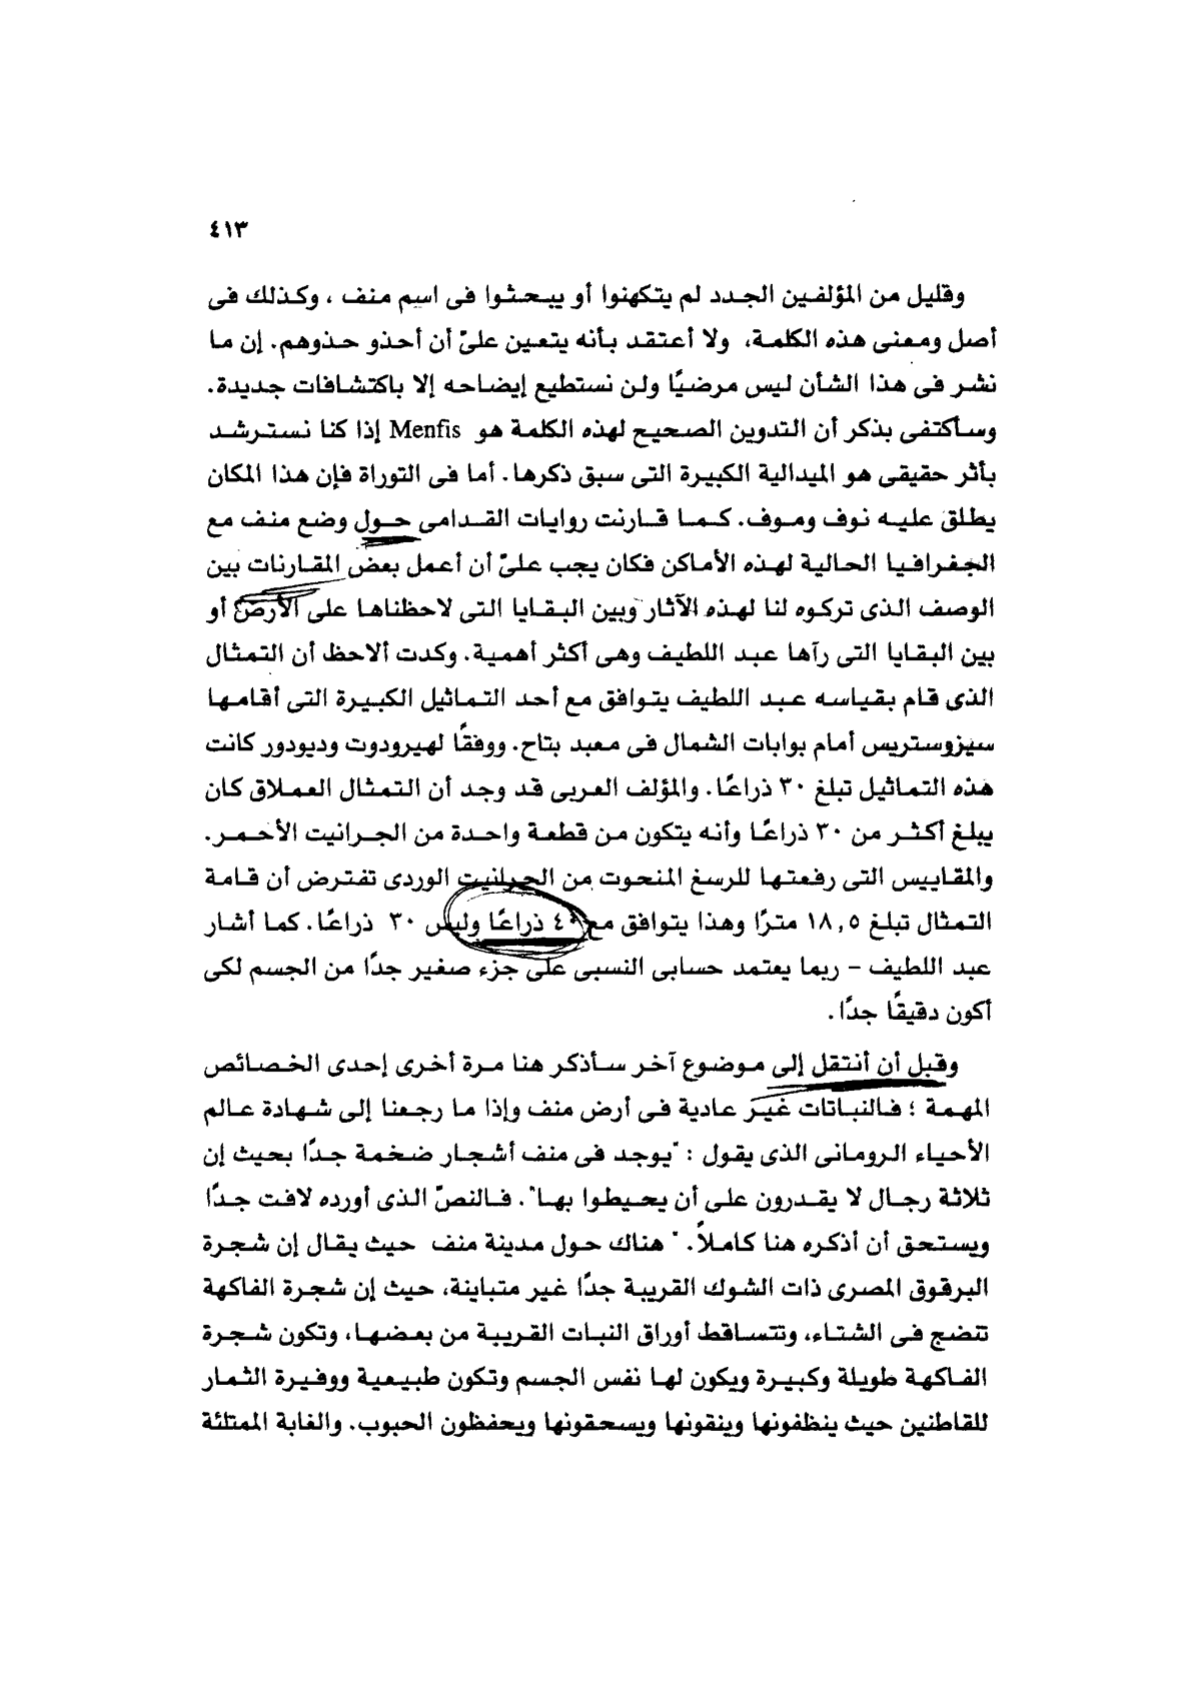 ٤١٣
وقليل من المؤلفين الجدد لم يتكهنوا أو يبحثوا فى اسم منف ، وكذلك فى
أصل ومعنى هذه الكلمة، ولا أعتقد بأنه يتعين علىّ أن أحذو حذوهم. إن ما
نشر فى هذا الشأن ليس مرضيًا ولن نستطيع إيضاحه إلا باكتشافات جديدة.
وسأكتفى بذكر أن التدوين الصحيح لهذه الكلمة هو Menfis إذا كنا نسترشد
بأثر حقيقى هو الميدالية الكبيرة التى سبق ذكرها. أما فى التوراة فإن هذا المكان
يطلق عليه نوف وموف. كما قارنت روايات القدامى حول وضع منف مع
الجغرافيا الحالية لهذه الأماكن فكان يجب علىّ أن أعمل بعض المقارنات بين
الوصف الذى تركوه لنا لهذه الآثار وبين البقايا التى لاحظناها على الأرض أو
بين البقايا التى رآها عبد اللطيف وهى أكثر أهمية. وكدت ألاحظ أن التمثال
الذى قام بقياسه عبد اللطيف يتوافق مع أحد التماثيل الكبيرة التى أقامها
سيزوستريس أمام بوابات الشمال فى معبد بتاح. ووفقًا لهيرودوت وديودور كانت
هذه التماثيل تبلغ ٣٠ ذراعًا. والمؤلف العربى قد وجد أن التمثال العملاق كان
يبلغ أكثر من ٣٠ ذراعًا وأنه يتكون من قطعة واحدة من الجرانيت الأحمر.
والمقاييس التى رفعتها للرسغ المنحوت من الجرانيت الوردى تفترض أن قامة
التمثال تبلغ ١٨,٥ مترًا وهذا يتوافق مع ٤٠ ذراعًا وليس ٣٠ ذراعًا. كما أشار
عبد اللطيف – ربما يعتمد حسابى النسبى على جزء صغير جدًا من الجسم لكى
أكون دقيقًا جدًا.
وقبل أن أنتقل إلى موضوع آخر سأذكر هنا مرة أخرى إحدى الخصائص
المهمة ؛ فالنباتات غير عادية فى أرض منف وإذا ما رجعنا إلى شهادة عالم
الأحياء الرومانى الذى يقول : "يوجد فى منف أشجار ضخمة جدًا بحيث إن
ثلاثة رجال لا يقدرون على أن يحيطوا بها". فالنصّ الذى أورده لافت جدًا
ويستحق أن أذكره هنا كاملاً. " هناك حول مدينة منف حيث يقال إن شجرة
البرقوق المصرى ذات الشوك القريبة جدًا غير متباينة، حيث إن شجرة الفاكهة
تنضج فى الشتاء، وتتساقط أوراق النبات القريبة من بعضها، وتكون شجرة
الفاكهة طويلة وكبيرة ويكون لها نفس الجسم وتكون طبيعية ووفيرة الثمار
للقاطنين حيث ينظفونها وينقونها ويسحقونها ويحفظون الحبوب. والغابة الممتلئة